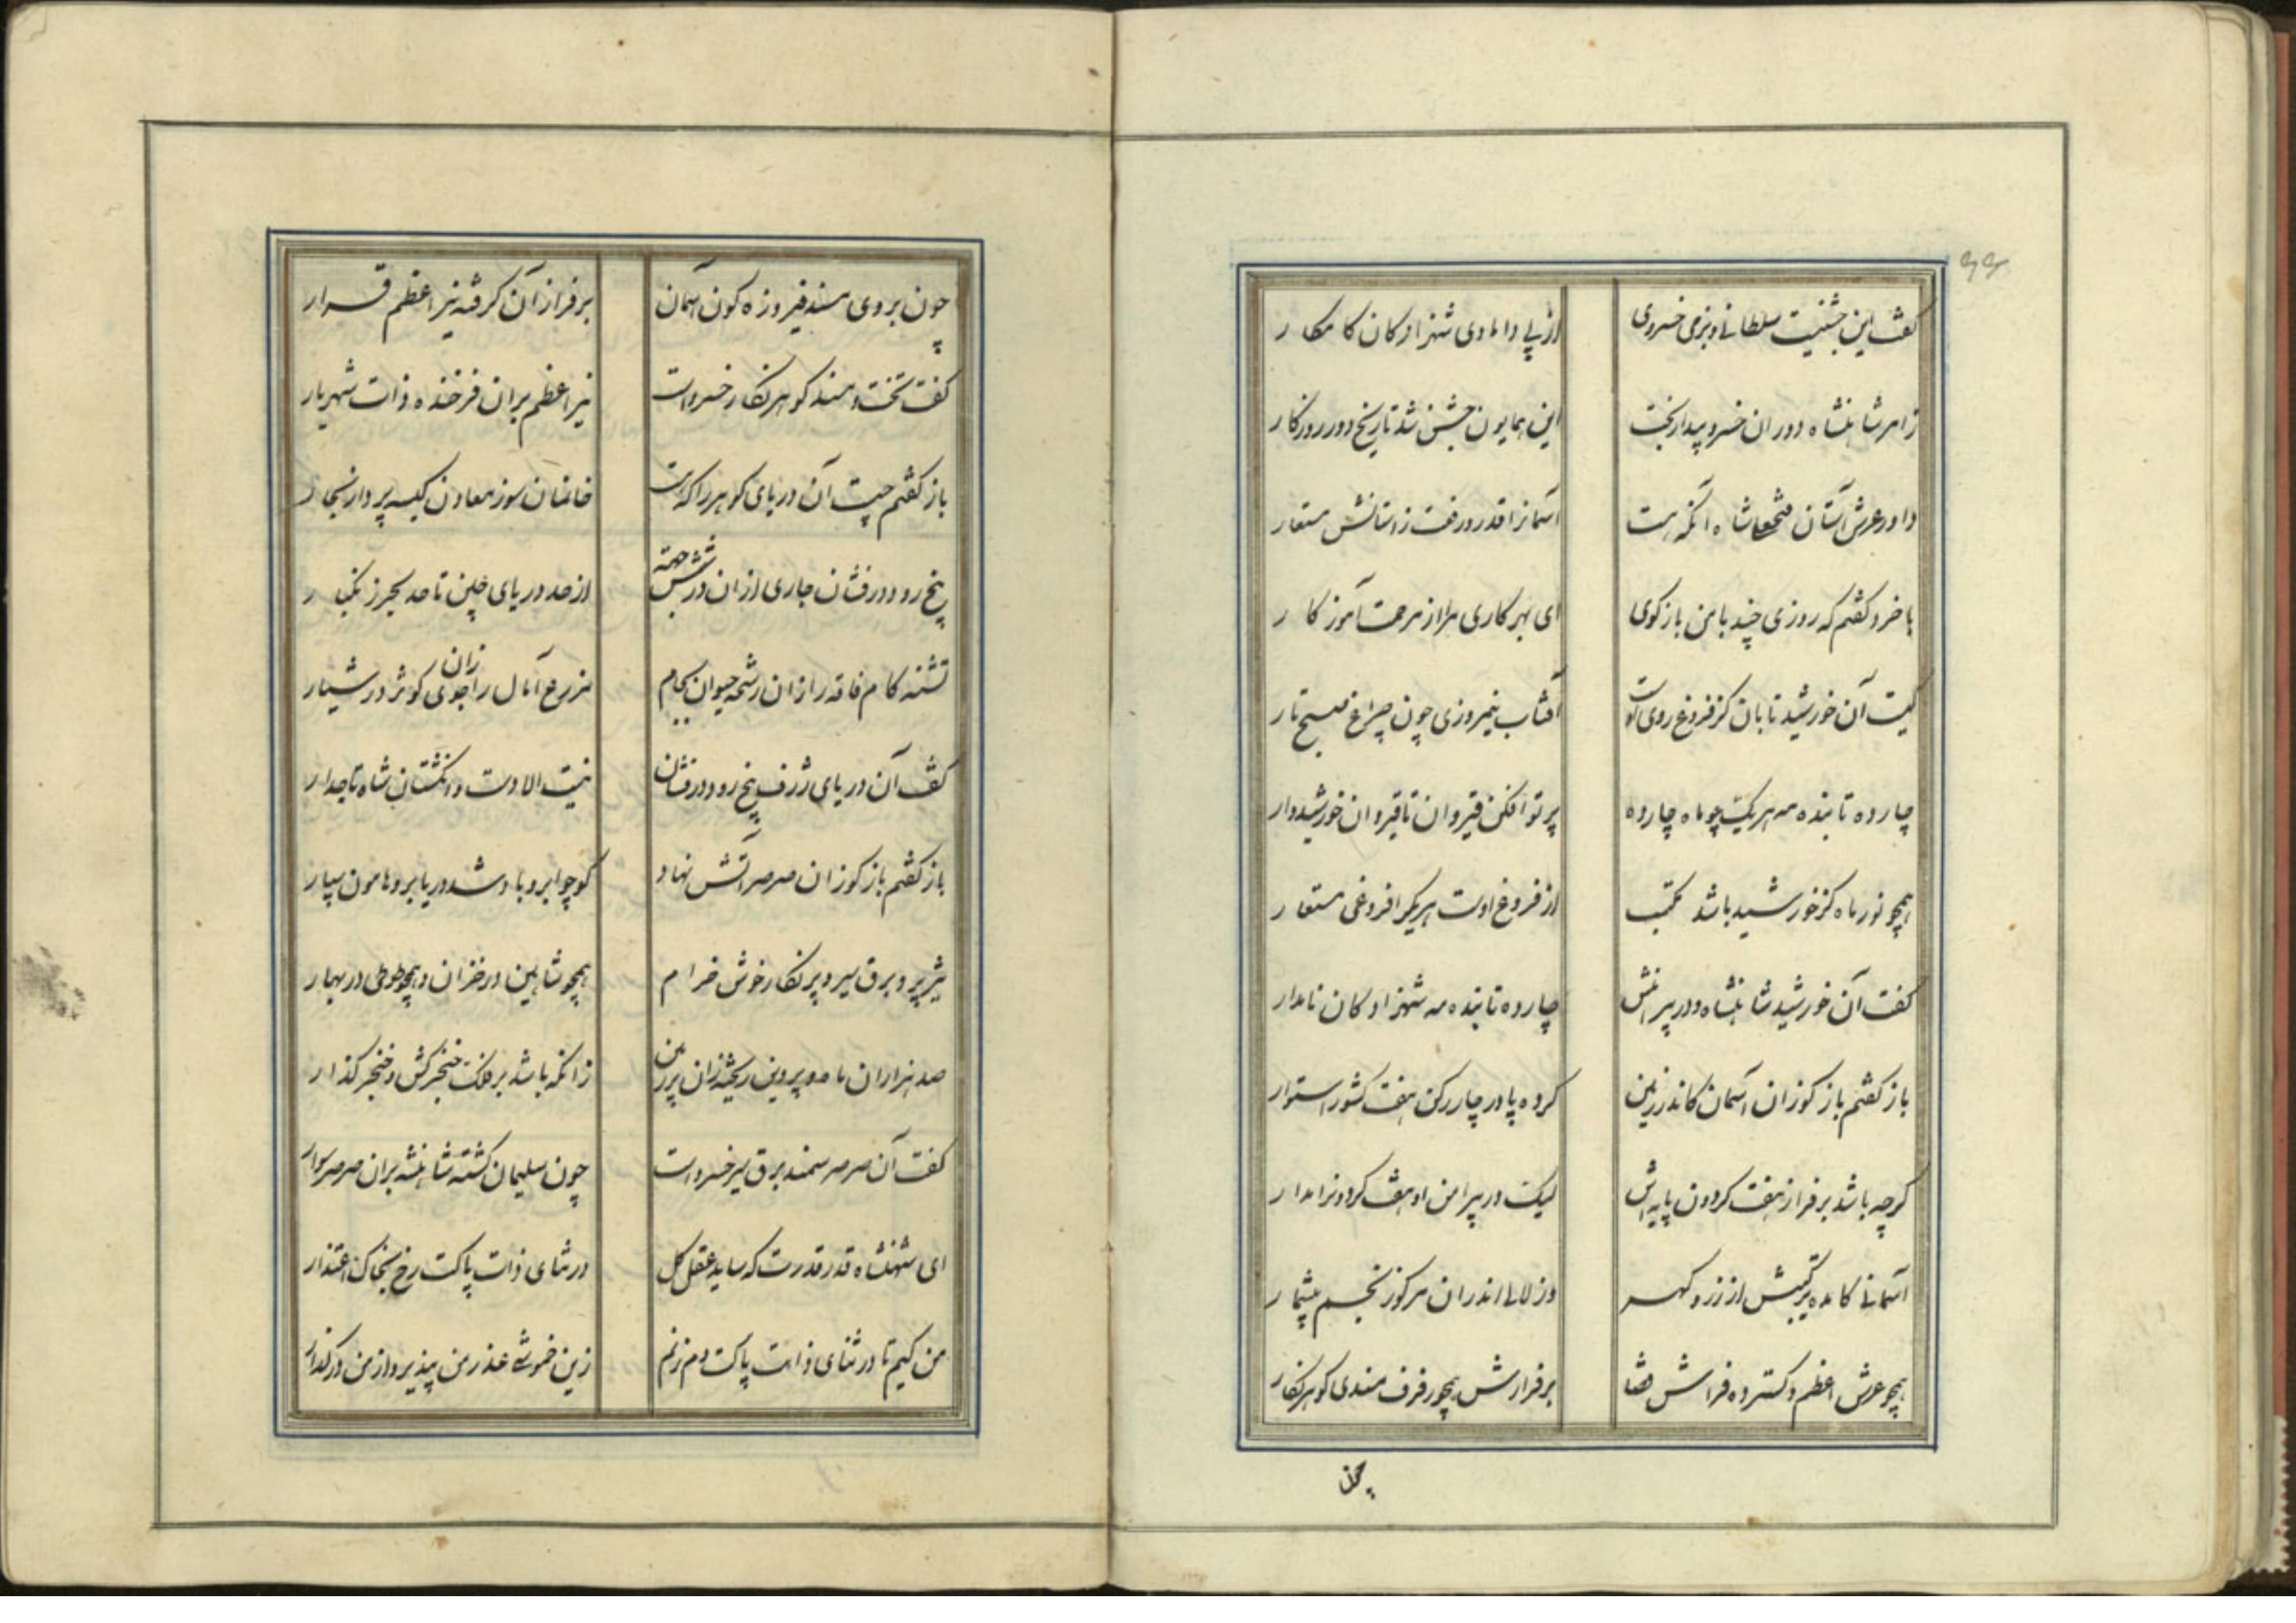 ۶۶
گفت این جشنیست سلطانی و بزمی خسروی
از پی دامادی شهزادگان کامکار
ز امر شاهنشاه دوران خسرو بیدار بخت
این همایون جشن شد تاریخ دور روزگار
داور عرش آستان فتحعلیشاه آنکه هست
آسمانرا قدر و رفعت ز آستانش مستعار
با خرد گفتم که روزی چند با من بازگوی
ای بهر کاری مرا از مرحمت آموزگار
کیست آن خورشید تابان کز فروغ روی اوست
آفتاب نیمروزی چون چراغ صبح تار
چارده تابنده مه هر یک چو ماه چارده
پرتو افکن قیروان تا قیروان خورشیدوار
همچو نور ماه کز خورشید باشد مکتسب
از فروغ اوست هر یکرا فروغی مستعار
گفت آن خورشید شاهنشاه و در پیرامنش
چارده تابنده مه شهزادگان نامدار
باز گفتم باز گو زان آسمان کاندر زمین
کرده پا در چار رکن هفت کشور استوار
گرچه باشد بر فراز هفت گردون پایه اش
لیک در پیرامن او هفت گردونرا مدار
آسمانی کامده ترکیبش از زر و گهر
وز لالی اندران مرکوز نجم بیشمار
همچو عرش اعظم و گسترده فراش قضا
بر فرازش همچو رفرف مسندی گوهر نگار
چون
چون بروی مسند فیروزه گون آسمان
بر فراز آن گرفته نیر اعظم قرار
گفت تخت و مسند گوهر نگار خسرواست
نیر اعظم بران فرخنده ذات شهریار
باز گفتم چیست آن دریای گوهرزا که هست
خانمان سوز معادن کیسه پرداز بحار
پنج رود درفشان جاری ازان در شش جهة
از حد دریای چین تا حد بحر زنگبار
تشنه کام فاقه را زان رشحه حیوان بجام
مزرع آمال را زان جوی کوثر در شیار
گفت آن دریای ژرف پنج رود درفشان
نیست الا دست و انگشتان شاه تاجدار
باز گفتم باز گو زان صرصر آتش نهاد
کو چو ابر و باد شد دریا بر و هامون سپار
شیر پر و برق سیر و پر نگار خوش خرام
همچو شاهین در خزان و همچو طوطی در بهار
صد هزاران ماه و پروین ریخته زان بر زمین
زانکه باشد بر فلک خنجر کش و خنجر گذار
گفت آن صرصر سمند برق سیر خسرواست
چون سلیمان گشته شاهنشه بران صرصر سوار
ای شهنشاه قدر قدرت که ساید عقل کل
در ثنای ذات پاکت رخ بخاک اعتذار
من کیم تا در ثنای ذات پاکت دم زنم
زین خموشی عذر من بپذیر و از من در گذار